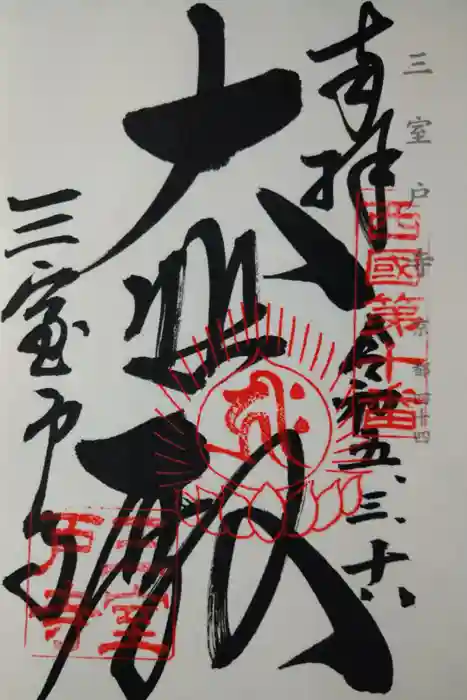 三室戸寺
奉拝
西國第十番
令和五、三、十六
大悲殿
三室戸寺
三室戸寺